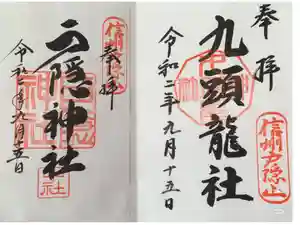 奉拝
信州戸隠山
九頭龍社
令和二年九月十五日
信州戸隠山
奉拝
戸隠神社
令和二年九月十五日